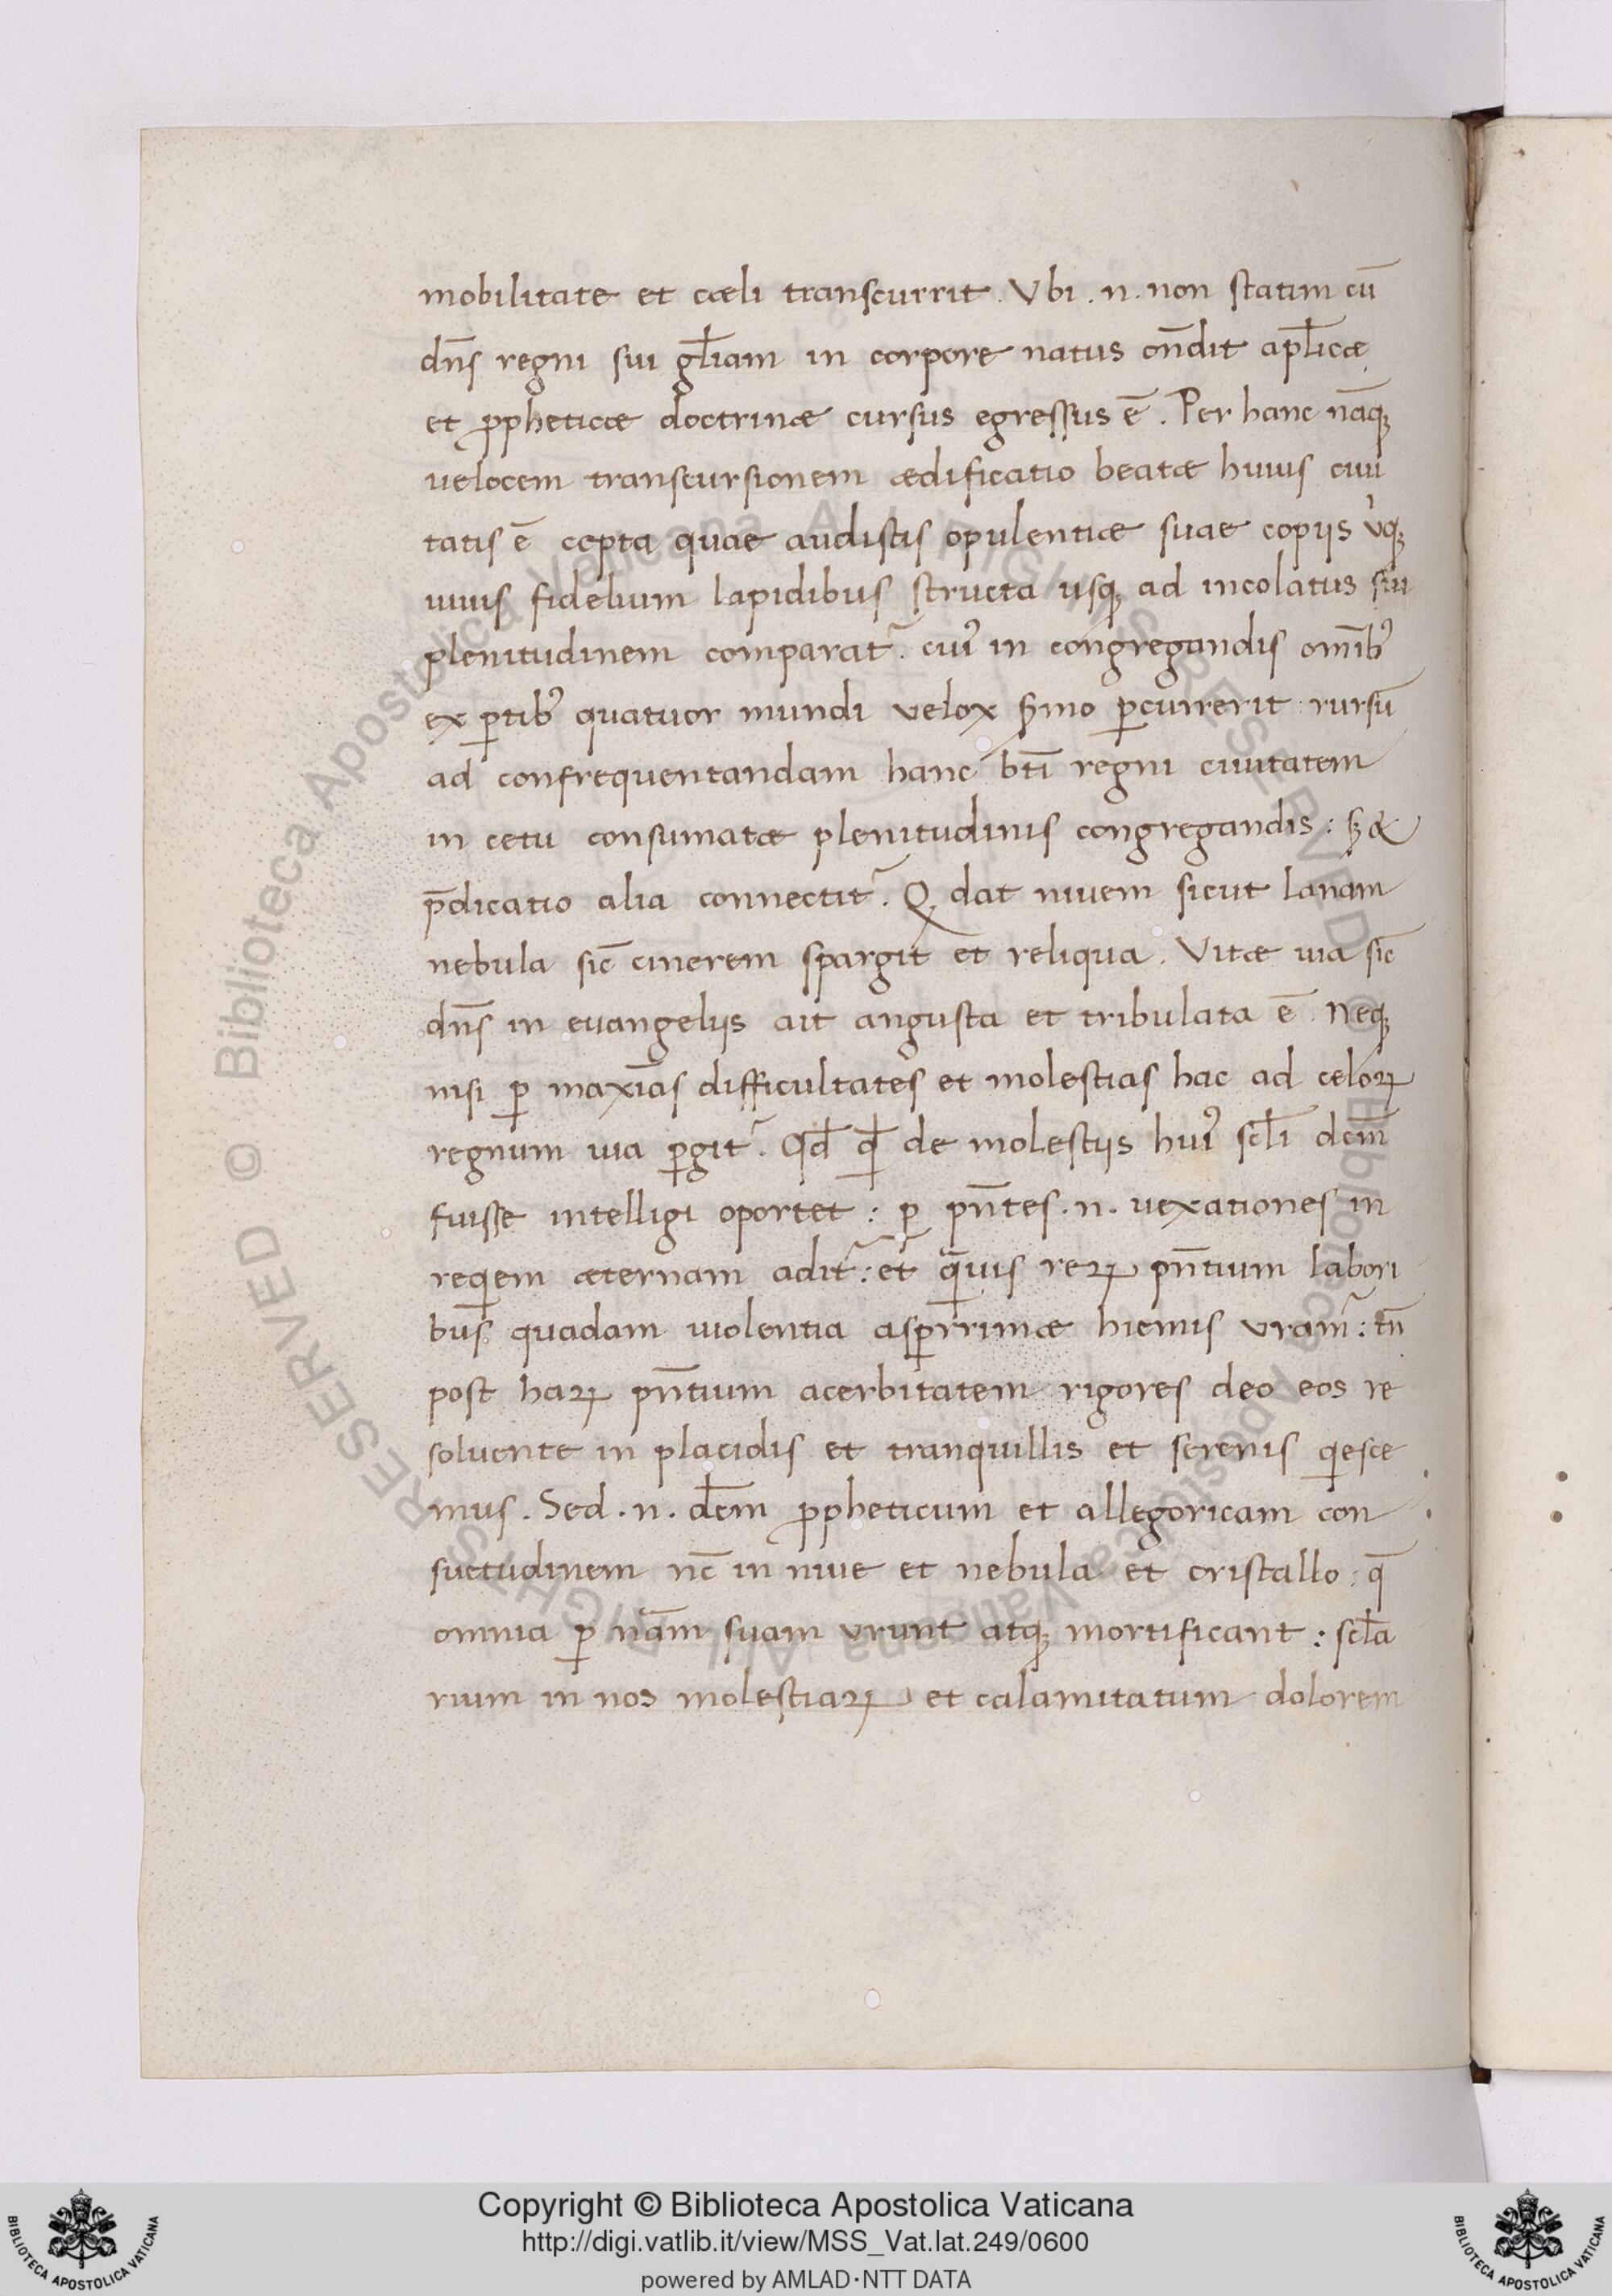 mobilitate et cæli transcurrit. Vbi .n. non statim cū
dn̄s regni sui gl̄iam in corpore natus on̄dit apl̄icæ
et ꝓpheticæ doctrinæ cursus egressus ē. Per hanc nāqꝫ
uelocem transcursionem ædificatio beatæ huius ciui
tatis ē cepta quae audistis opulentiæ suae copijs
uiuis fidelium lapidibus structa usqꝫ ad incolatus sui
plenitudinem comparat᷑. cuiꝰ in congregandis om̄ibꝰ
ex ꝑtibꝰ quatuor mundi velox ẜmo ꝑcurrerit : rursū
ad confrequentandam hanc bt̄i regni ciuitatem
in cetu consumatæ plenitudinis congregandis : ꝫ &
p̄dicatio alia connectit᷑. Q dat niuem sicut lanam
nebula sic̄ cinerem spargit et reliqua. Vitæ uia sic̄
dn̄s in euangelijs ait angusta et tribulata ē. Neqꝫ
nisi ꝑ maxīas difficultates et molestias hac ad celoꝝ
regnum uia ꝑgit᷑. Qd̄ qͥd de molestijs huiꝰ scl̄i dc̄m
fuisse intelligi oportet : ꝑ pn̄tes .n. uexationes in
reqͥem æternam adit᷑ : et qͣuis reꝝ pn̄tium labori
bus quadam uiolentia asꝑrrimæ hiemis vram᷑ : tn̄
post haꝝ pn̄tium acerbitatem rigores deo eos re
soluente in placidis et tranquillis et serenis qͥesce
mus. Sed .n. d̄em ꝓpheticum et allegoricam con
suetudinem nc̄ in niue et nebula et cristallo : q̄
omnia ꝑ nām suam vrunt atqꝫ mortificant : scl̄a
rium in nos molestiaꝝ et calamitatum dolorem
Copyright © Biblioteca Apostolica Vaticana
http://digi.vatlib.it/view/MSS_Vat.lat.249/0600
powered by AMLAD·NTT DATA
BIBLIOTECA APOSTOLICA VATICANA
BIBLIOTECA APOSTOLICA VATICANA